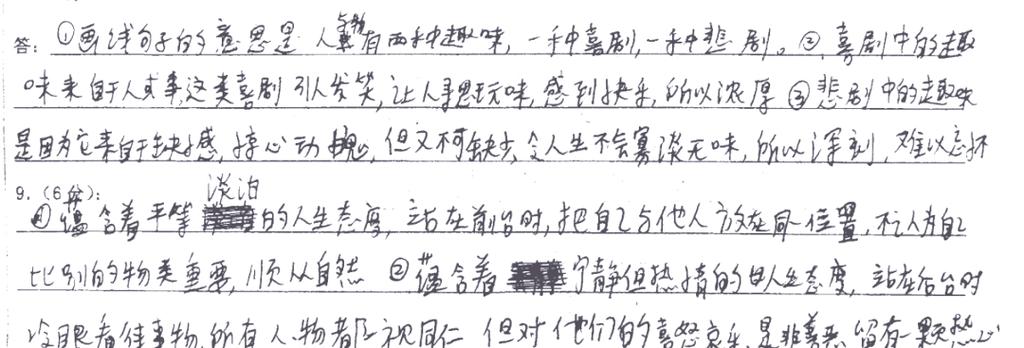 答：①画线句子的意思是人类有两种趣味，一种喜剧，一种悲剧。②喜剧中的趣
味来自于人或事，这类喜剧引人发笑，让人寻思玩味，感到快乐，所以浓厚③悲剧中的趣味
是因为它来自于缺憾，惊心动魄，但又不可缺少，令人生不会寡淡无味，所以深刻，难以忘怀
淡泊
9.（6分）：
①蕴含着平等的人生态度，站在前台时，把自己与他人放在同位置，不认为自己
比别的物类重要，顺从自然 ②蕴含着宁静但热情的人生态度，站在后台时
冷眼看待事物，所有人、物都一视同仁 但对他们的喜怒哀乐、是非善恶 留有一颗热心